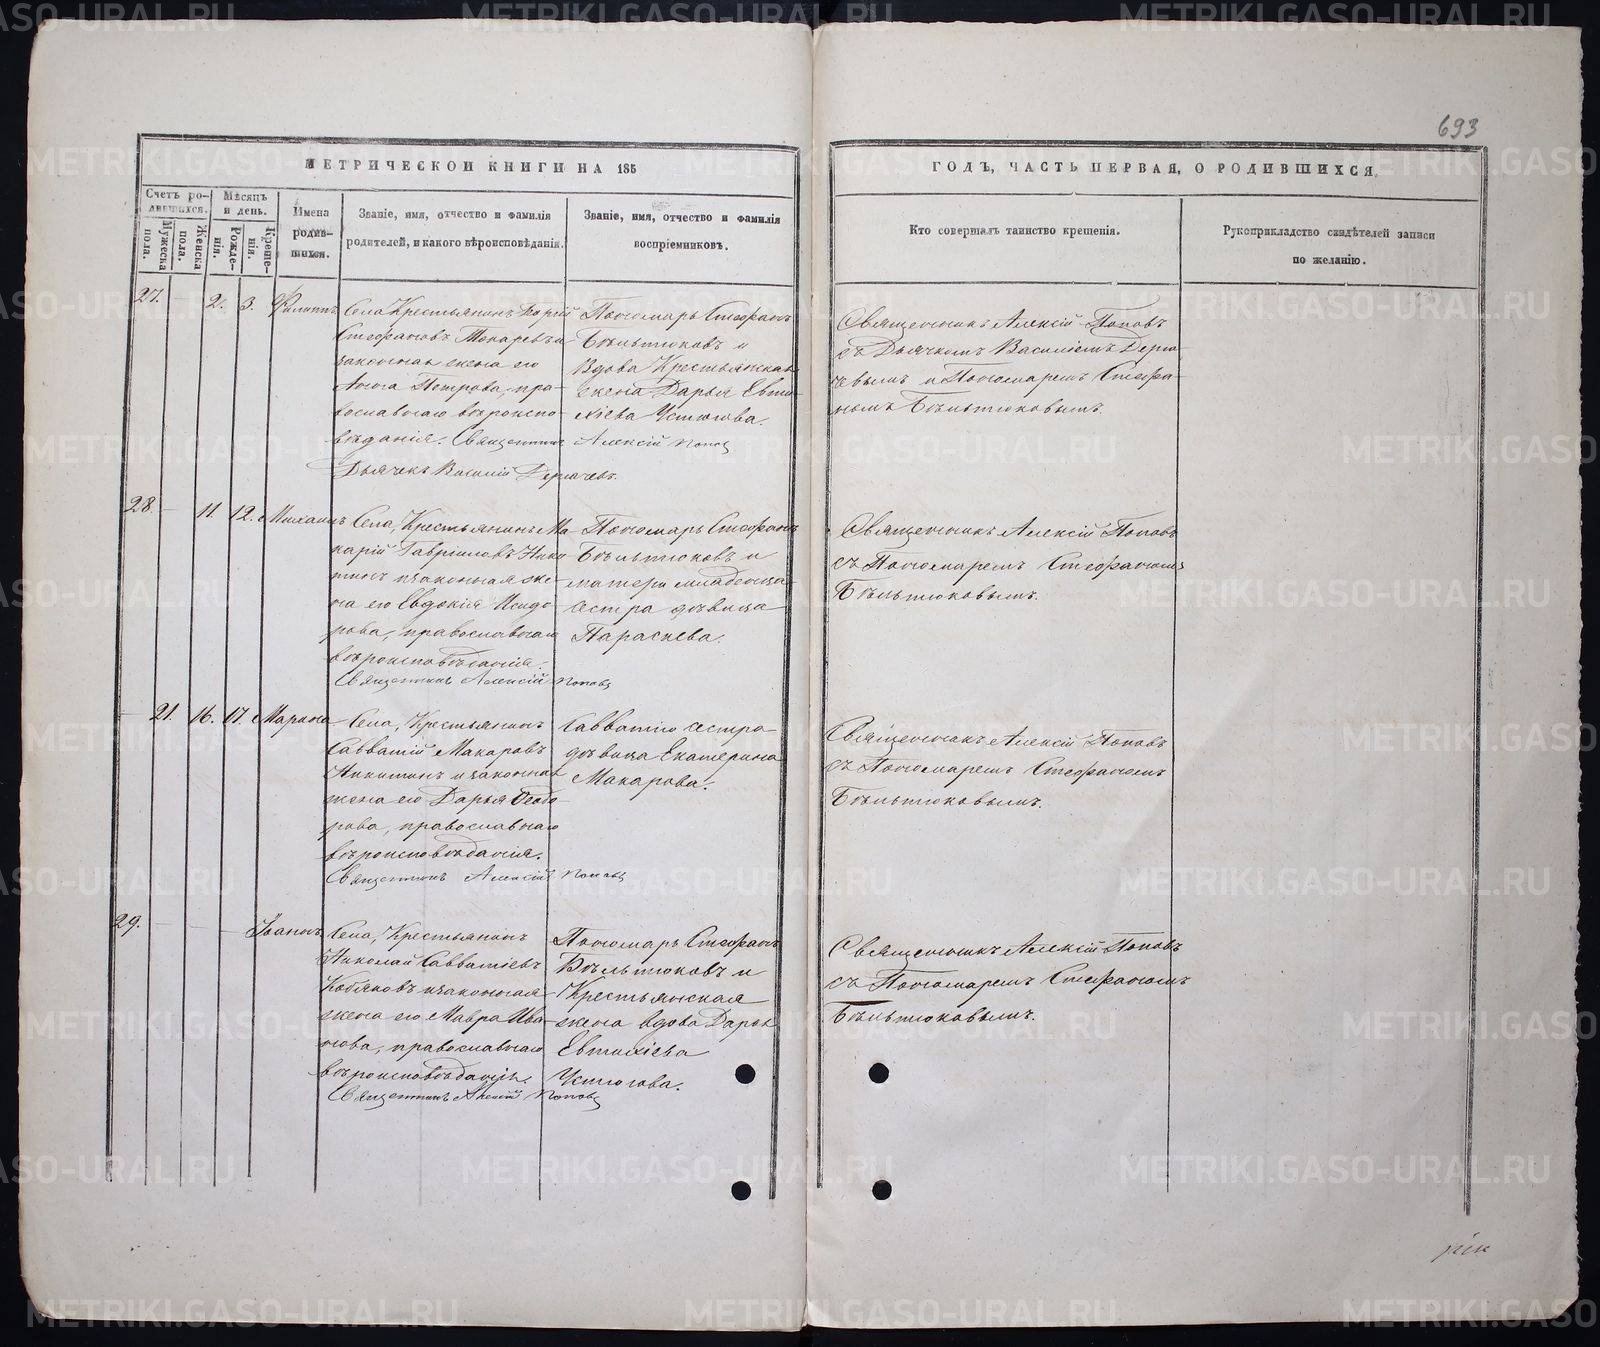 693
МЕТРИЧЕСКОЙ КНИГИ НА 185
ГОДЪ, ЧАСТЬ ПЕРВАЯ, О РОДИВШИХСЯ.
Счетъ ро-
дившихся.
Мужеска
пола.
Женска
пола.
Мѣсяцъ
и день.
Рожде-
нія.
Креще-
нія.
Имена
родив-
шихся.
Званіе, имя, отчество и фамилія
родителей, и какого вѣроисповѣданія.
Званіе, имя, отчество и фамилія
воспріемниковъ.
Кто совершалъ таинство крещенія.
Рукоприкладство свидѣтелей записи
по желанію.
27. 2. 3. Филиппъ
Села, Крестьянинъ
Стефановъ Токаревъ и
законная жена его
Анна Петрова, пра-
вославнаго вѣроиспо-
вѣданія. Священникъ Алексій Поповъ
Дьячекъ Василій Дергачевъ.
Пономарь Стефанъ
Бѣльтюковъ и
Вдова Крестьянская
жена Дарья Евти-
хіева Устюгова.
Священникъ Алексій Поповъ
съ Дьячкомъ Василіемъ Дерга-
чевымъ и Пономаремъ Стефа-
номъ Бѣльтюковымъ.
28. 11. 12. Михаилъ
Села, Крестьянинъ Ма-
карій Гавріиловъ Ники-
тинъ и законная же-
на его Евдокія Исидо-
рова, православнаго
вѣроисповѣданія.
Священникъ Алексій Поповъ
Пономарь Стефанъ
Бѣльтюковъ и
матери младенца
сестра дѣвица
Параскева.
Священникъ Алексій Поповъ
съ Пономаремъ Стефаномъ
Бѣльтюковымъ.
21. 16. 17. Марина
Села, Крестьянинъ
Савватій Макаровъ
Никитинъ и законная
жена его Дарья Ѳеодо-
рова, православнаго
вѣроисповѣданія.
Священникъ Алексій Поповъ
Савватію сестра
дѣвица Екатерина
Макарова.
Священникъ Алексій Поповъ
съ Пономаремъ Стефаномъ
Бѣльтюковымъ.
29. Іоаннъ
Села, Крестьянинъ
Николай Савватіевъ
Кобяковъ и законная
жена его Мавра Ива-
нова, православнаго
вѣроисповѣданія.
Священникъ Алексій Поповъ
Пономарь Стефанъ
Бѣльтюковъ и
Крестьянская
жена вдова Дарья
Евтихіева
Устюгова.
Священникъ Алексій Поповъ
съ Пономаремъ Стефаномъ
Бѣльтюковымъ.
METRIKI.GASO-URAL.RU